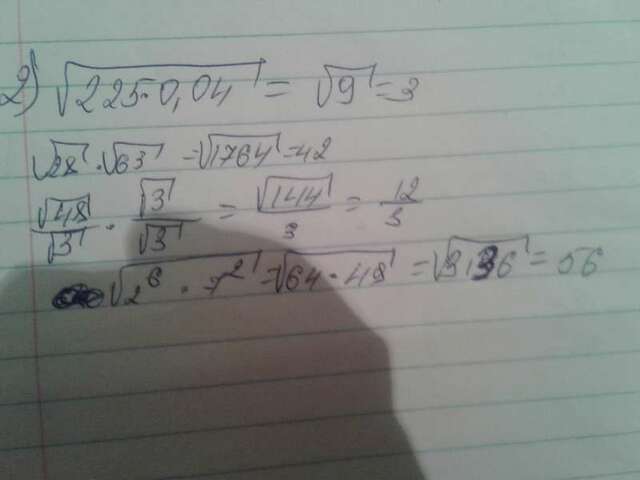 2) √225·0,04 = √9 = 3
√28 · √63 = √1764 = 42
√48/√3 · √3/√3 = √144/3 = 12/3
√2⁶ · 7² = √64 · 48 = √3136 = 56